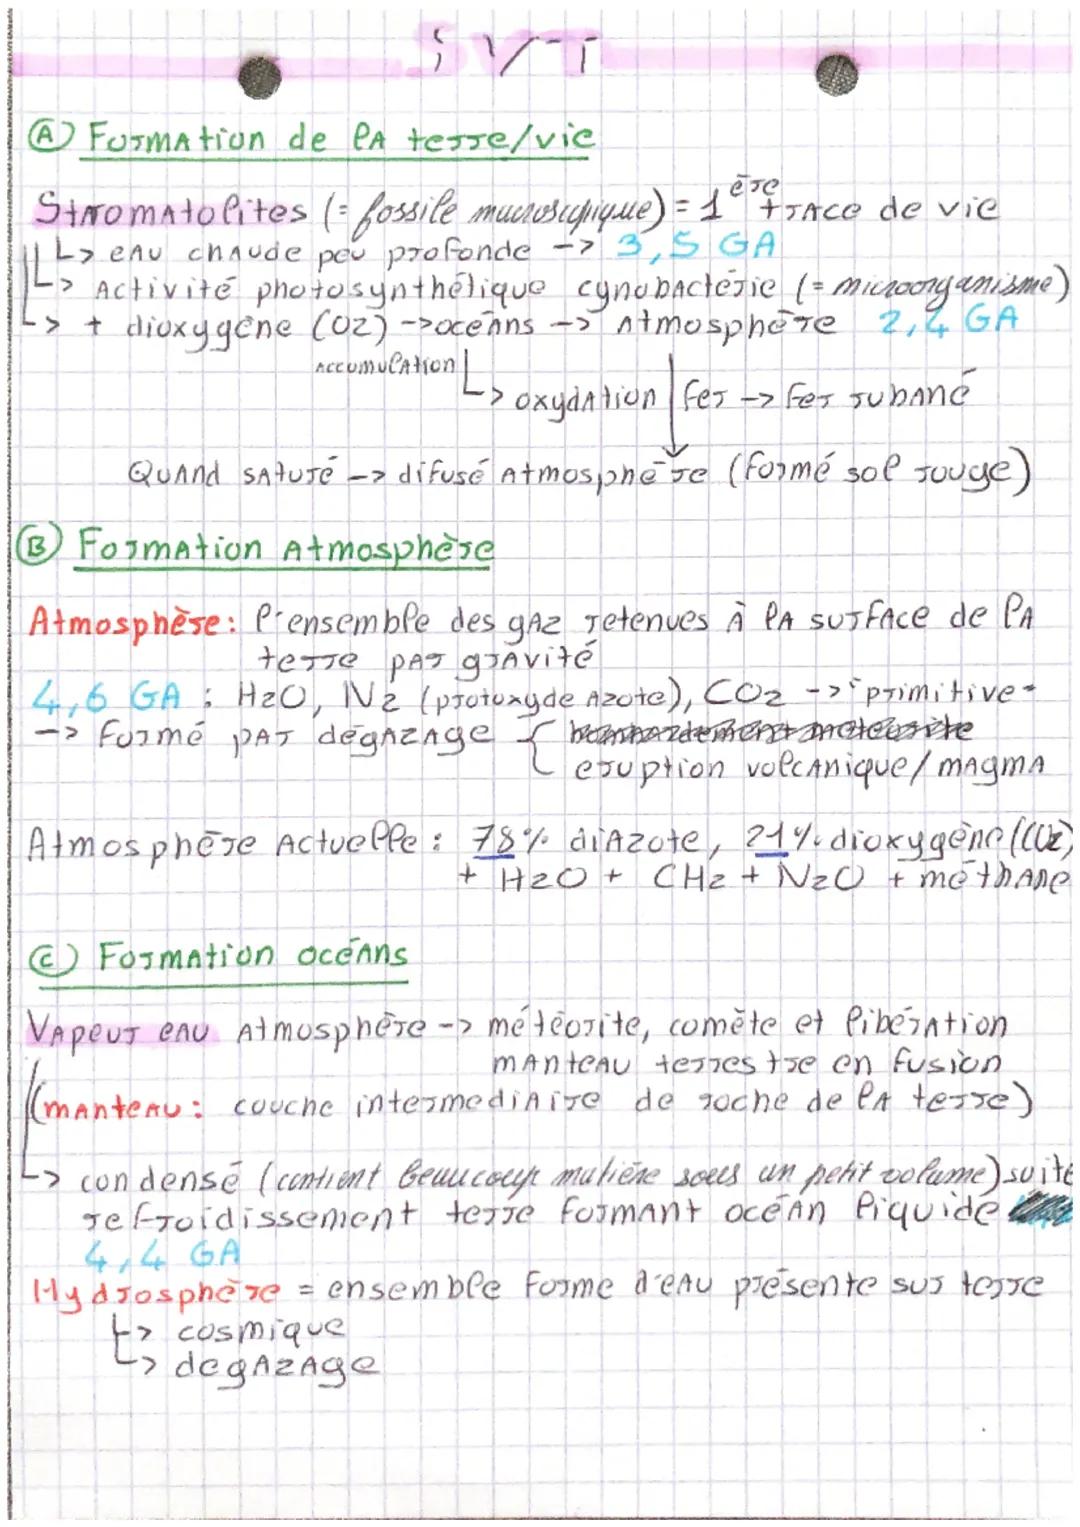 SVT
Ⓐ Formation de la terre/vie
Stromatolites (= fossile macroscopique) = 1ère trace de vie
↳ eau chaude peu profonde -> 3,5 GA
↳ Activité photosynthétique cynobactérie (= microorganisme)
↳ + dioxygène (O2) -> océans -> Atmosphère 2,4 GA
Accumulation
↳ oxydation fer -> fer rubané
Quand saturé -> difusé Atmosphère (formé sol rouge)
Ⓑ Formation Atmosphère
Atmosphère : l'ensemble des gaz retenues à la surface de la
terre par gravité
4,6 GA : H2O, N2 (protoxyde Azote), CO2 -> "primitive"
-> Formé par dégazage { bombardement météorite
eruption volcanique/magma
Atmosphère Actuelle : 78% diazote, 21% dioxygène (CO2)
+ H2O + CH2 + N2O + méthane
Ⓒ Formation océans
Vapeur eau Atmosphère -> météorite, comète et libération
manteau terrestre en fusion
(manteau : couche intermediaire de roche de la terre)
↳ condensé (contient beaucoup matière sous un petit volume) suite
refroidissement terre formant océan liquide
4,4 GA
Hydrosphère = ensemble forme d'eau présente sur terre
↳ cosmique
↳ degazage